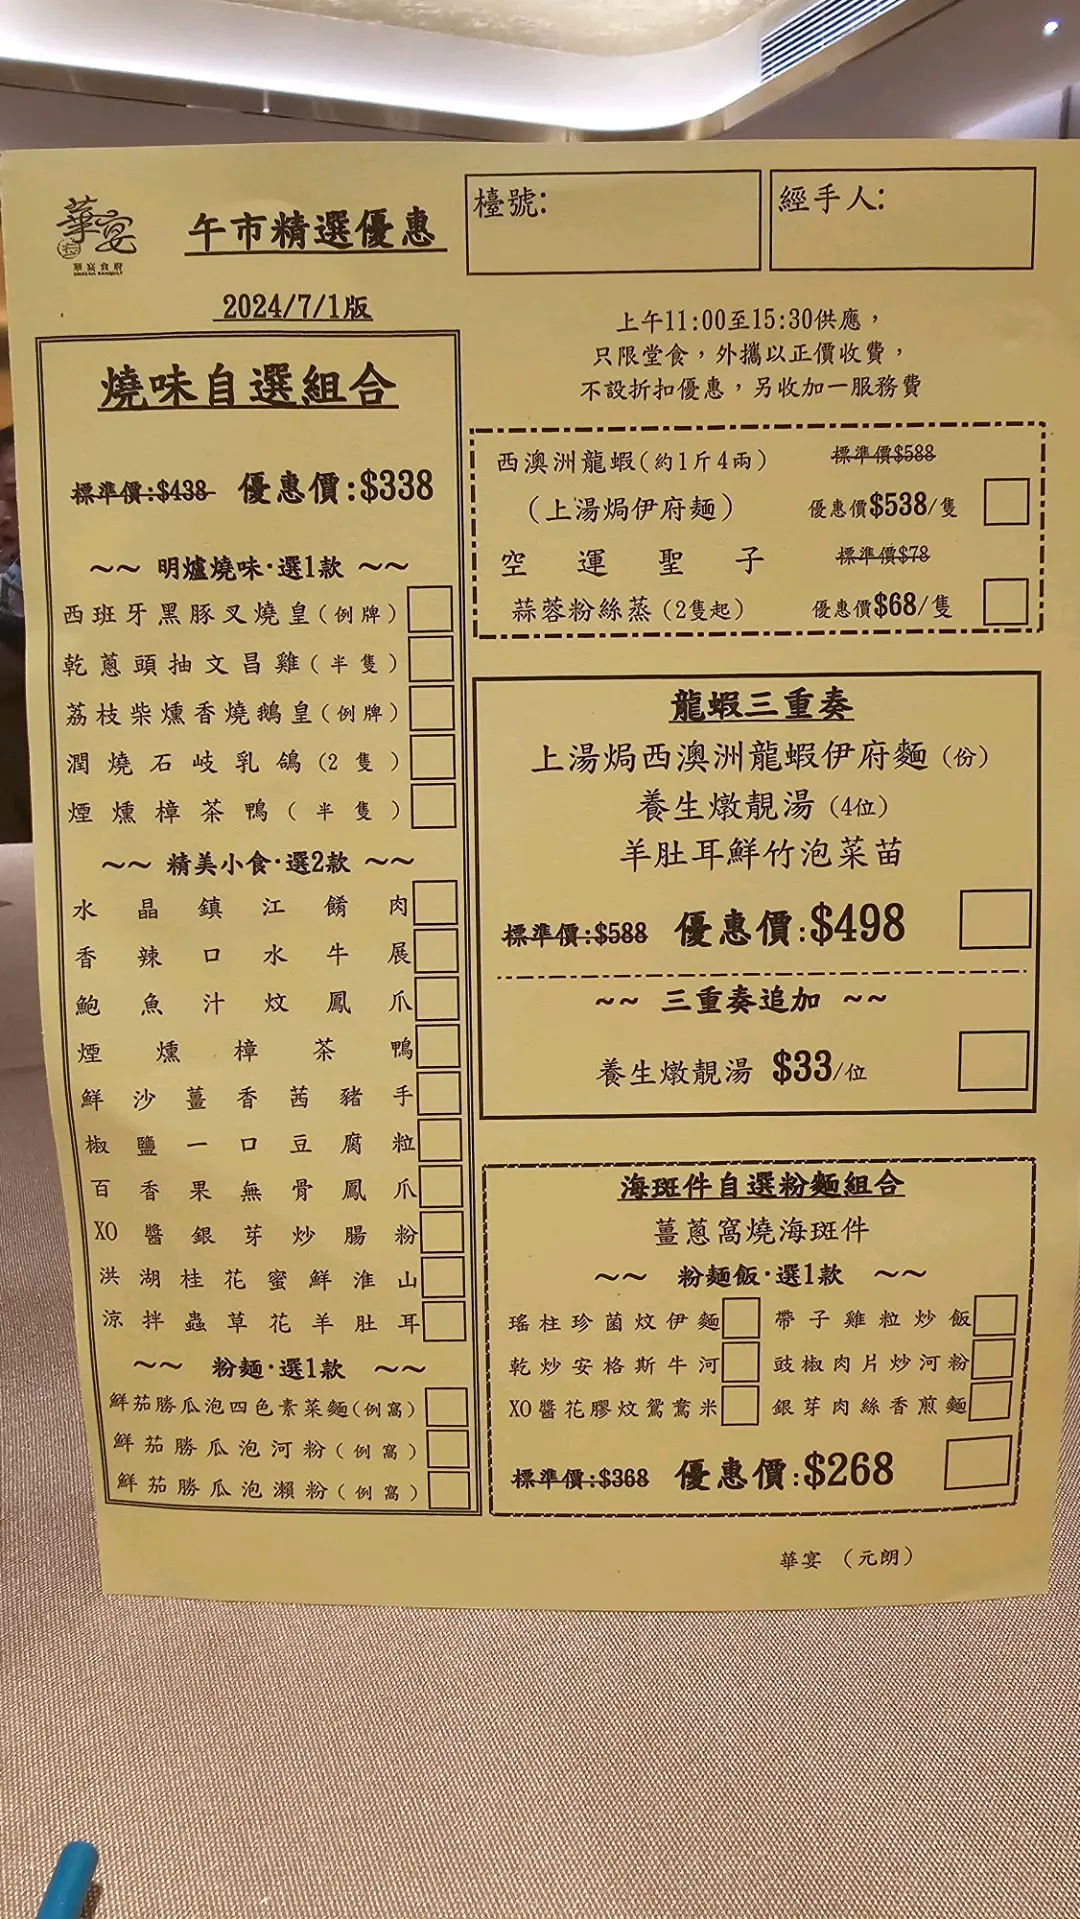 華宴
華宴食府
午市精選優惠
檯號:
經手人:
2024/7/1版
上午11:00至15:30供應，
只限堂食，外攜以正價收費，
不設折扣優惠，另收加一服務費
燒味自選組合
標準價:$438 優惠價:$338
~~ 明爐燒味·選1款 ~~
西班牙黑豚叉燒皇(例牌)
乾蔥頭抽文昌雞(半隻)
荔枝柴燻香燒鵝皇(例牌)
潤燒石岐乳鴿(2隻)
煙燻樟茶鴨(半隻)
~~ 精美小食·選2款 ~~
水晶鎮江餚肉
香辣口水牛展
鮑魚汁炆鳳爪
煙燻樟茶鴨
鮮沙薑香茜豬手
椒鹽一口豆腐粒
百香果無骨鳳爪
XO醬銀芽炒腸粉
洪湖桂花蜜鮮淮山
涼拌蟲草花羊肚耳
~~ 粉麵·選1款 ~~
鮮茄勝瓜泡四色素菜麵(例窩)
鮮茄勝瓜泡河粉(例窩)
鮮茄勝瓜泡瀨粉(例窩)
西澳洲龍蝦(約1斤4兩) 標準價$588
(上湯焗伊府麵) 優惠價$538/隻
空運聖子 標準價$78
蒜蓉粉絲蒸(2隻起) 優惠價$68/隻
龍蝦三重奏
上湯焗西澳洲龍蝦伊府麵(份)
養生燉靚湯(4位)
羊肚耳鮮竹泡菜苗
標準價:$588 優惠價:$498
~~ 三重奏追加 ~~
養生燉靚湯 $33/位
海斑件自選粉麵組合
薑蔥窩燒海斑件
~~ 粉麵飯·選1款 ~~
瑤柱珍菌炆伊麵 帶子雞粒炒飯
乾炒安格斯牛河 豉椒肉片炒河粉
XO醬花膠炆鴛鴦米 銀芽肉絲香煎麵
標準價:$368 優惠價:$268
華宴 (元朗)